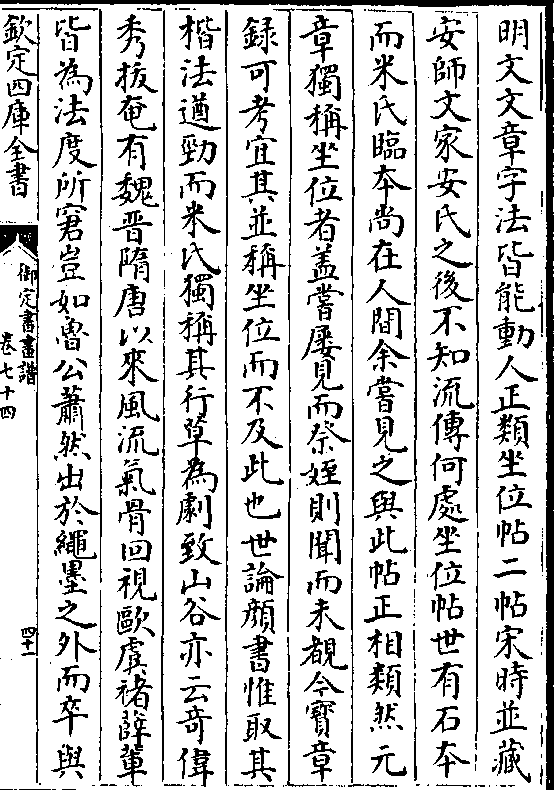 明文文章字法皆能動人正類坐位帖二帖宋時並藏
安師文家安氏之後不知流傳何處坐位帖世有石本
而米氏臨本尚在人間余嘗見之與此帖正相類然元
章獨稱坐位者盖嘗屢見而祭姪則聞而未覩今寳章
録可考宜其並稱坐位而不及此也世論顔書惟取其
楷法遒勁而米氏獨稱其行草為劇致山谷亦云奇偉
秀拔奄有魏晋隋唐以來風流氣骨回視歐虞褚薛輩
皆為法度所窘豈如魯公蕭然出於繩墨之外而卒與
欽定四庫全書
御定書畫譜
卷七十四
四十一